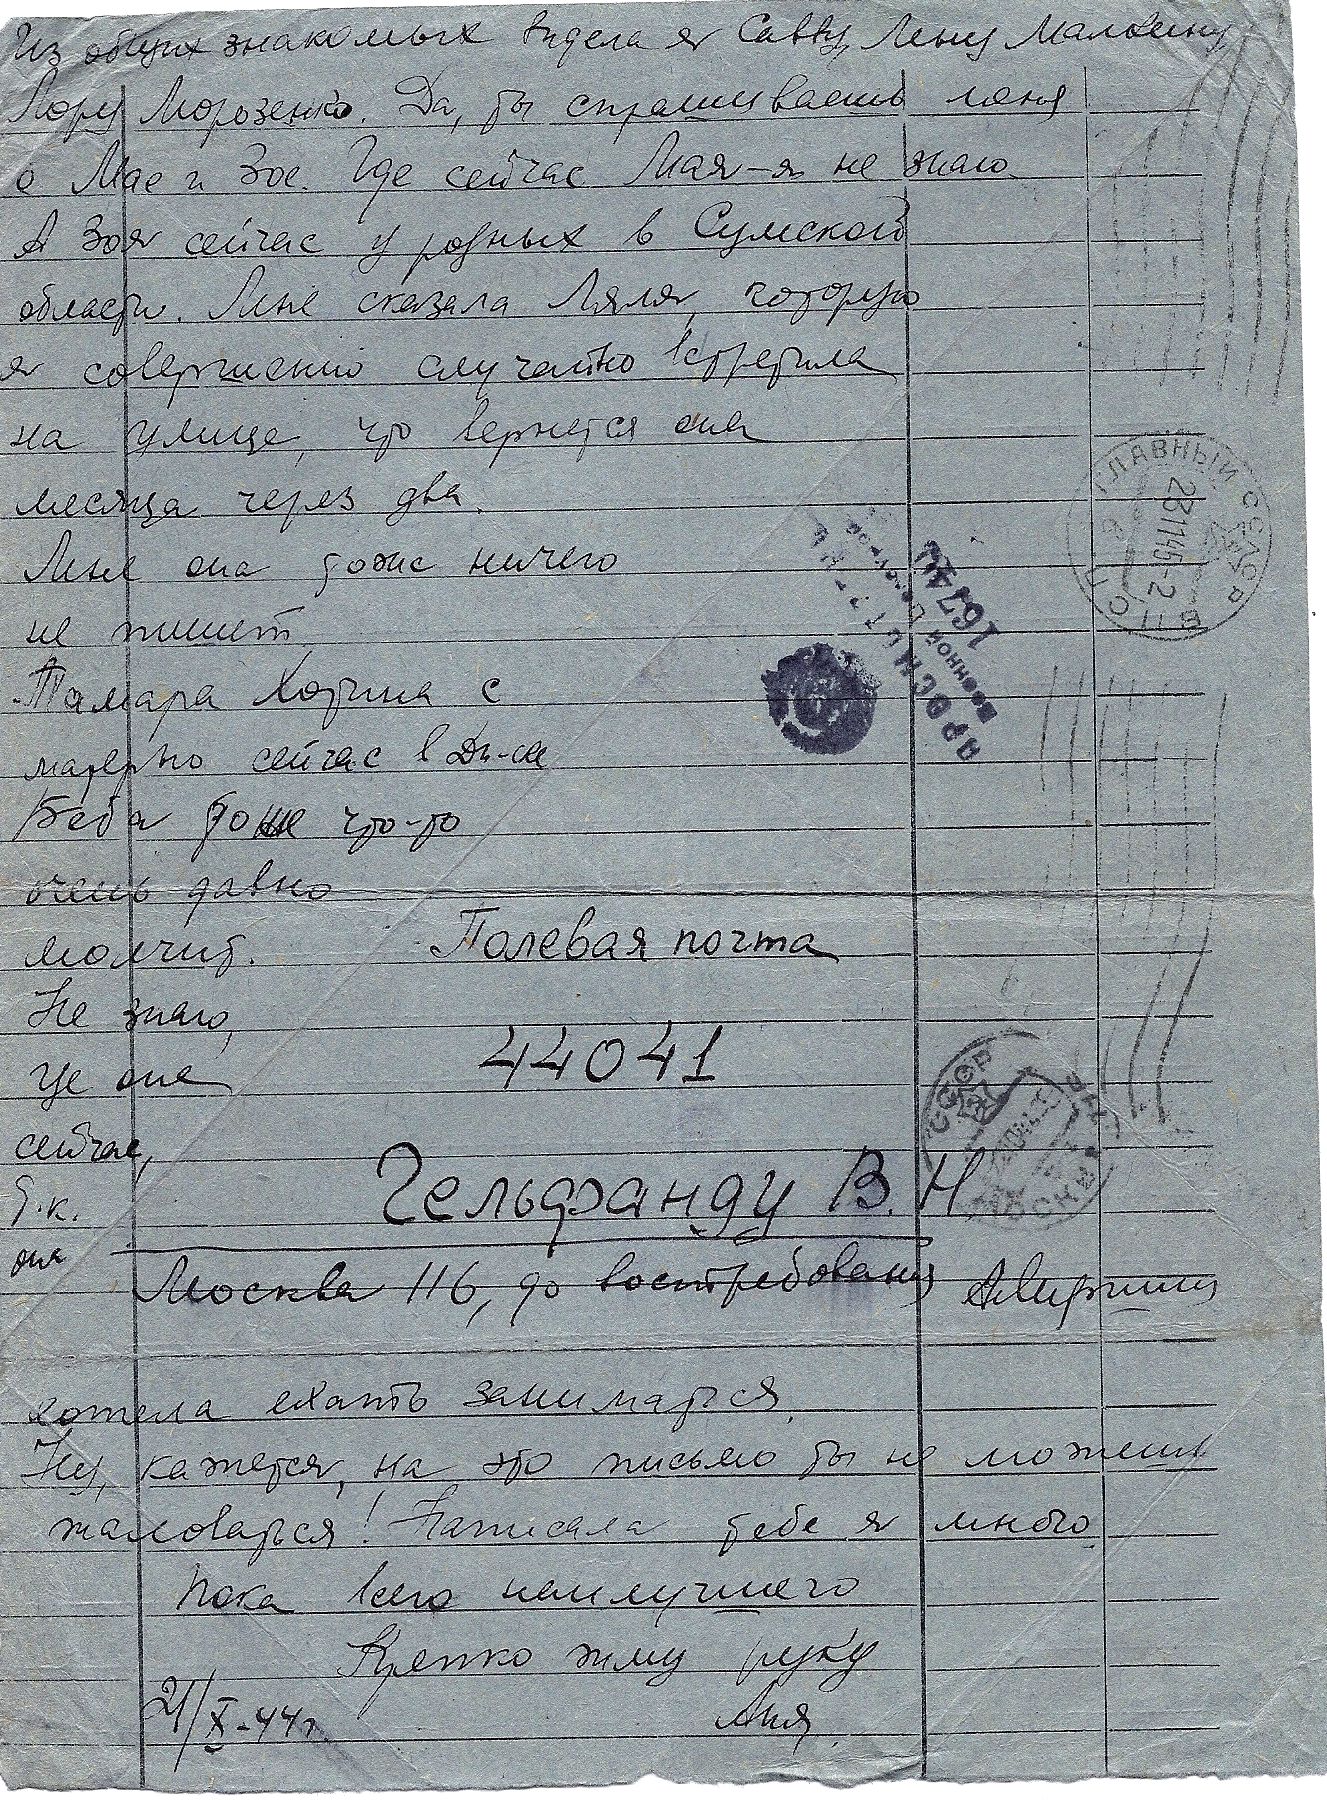 Из общих знакомых видела я Савву, Лену Малкину
Лору Морозенко. Да, ты спрашиваешь меня
о Мае и Зое. Где сейчас Мая-я не знаю.
А Зоя сейчас у родных в Сумской
области. Мне сказала Ляля, которую
я совершенно случайно встретила
на улице, что вернется она
месяца через два.
Мне она тоже ничего
не пишет.
Тамара Хотина с
матерью сейчас в Дн-ске
Беба тоже что-то
очень давно
молчит.
Не знаю,
где она
сейчас,
т.к.
она
Полевая почта
44041
Гельфанду В. Н
Москва 116, до востребования
хотела ехать заниматься.
Ну, кажется, на это письмо ты не можешь
жаловаться! Написала тебе я много
Пока всего наилучшего
Крепко жму руку
Аня
21/X-44г.
ПРОСМОТРЕНО
Военной Цензурой
16744
ГЛАВНЫЙ
СССР
МОСКВА